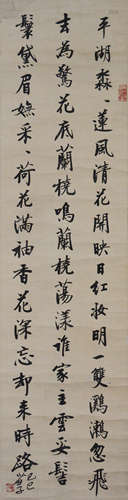 平湖淼淼蓮風清花開映日紅妝明一雙鸂鶒忽飛
去為驚花底蘭橈鳴蘭橈蕩漾誰家主雲妥髻
鬟黛眉嫵采采荷花滿袖香花深忘却來時路